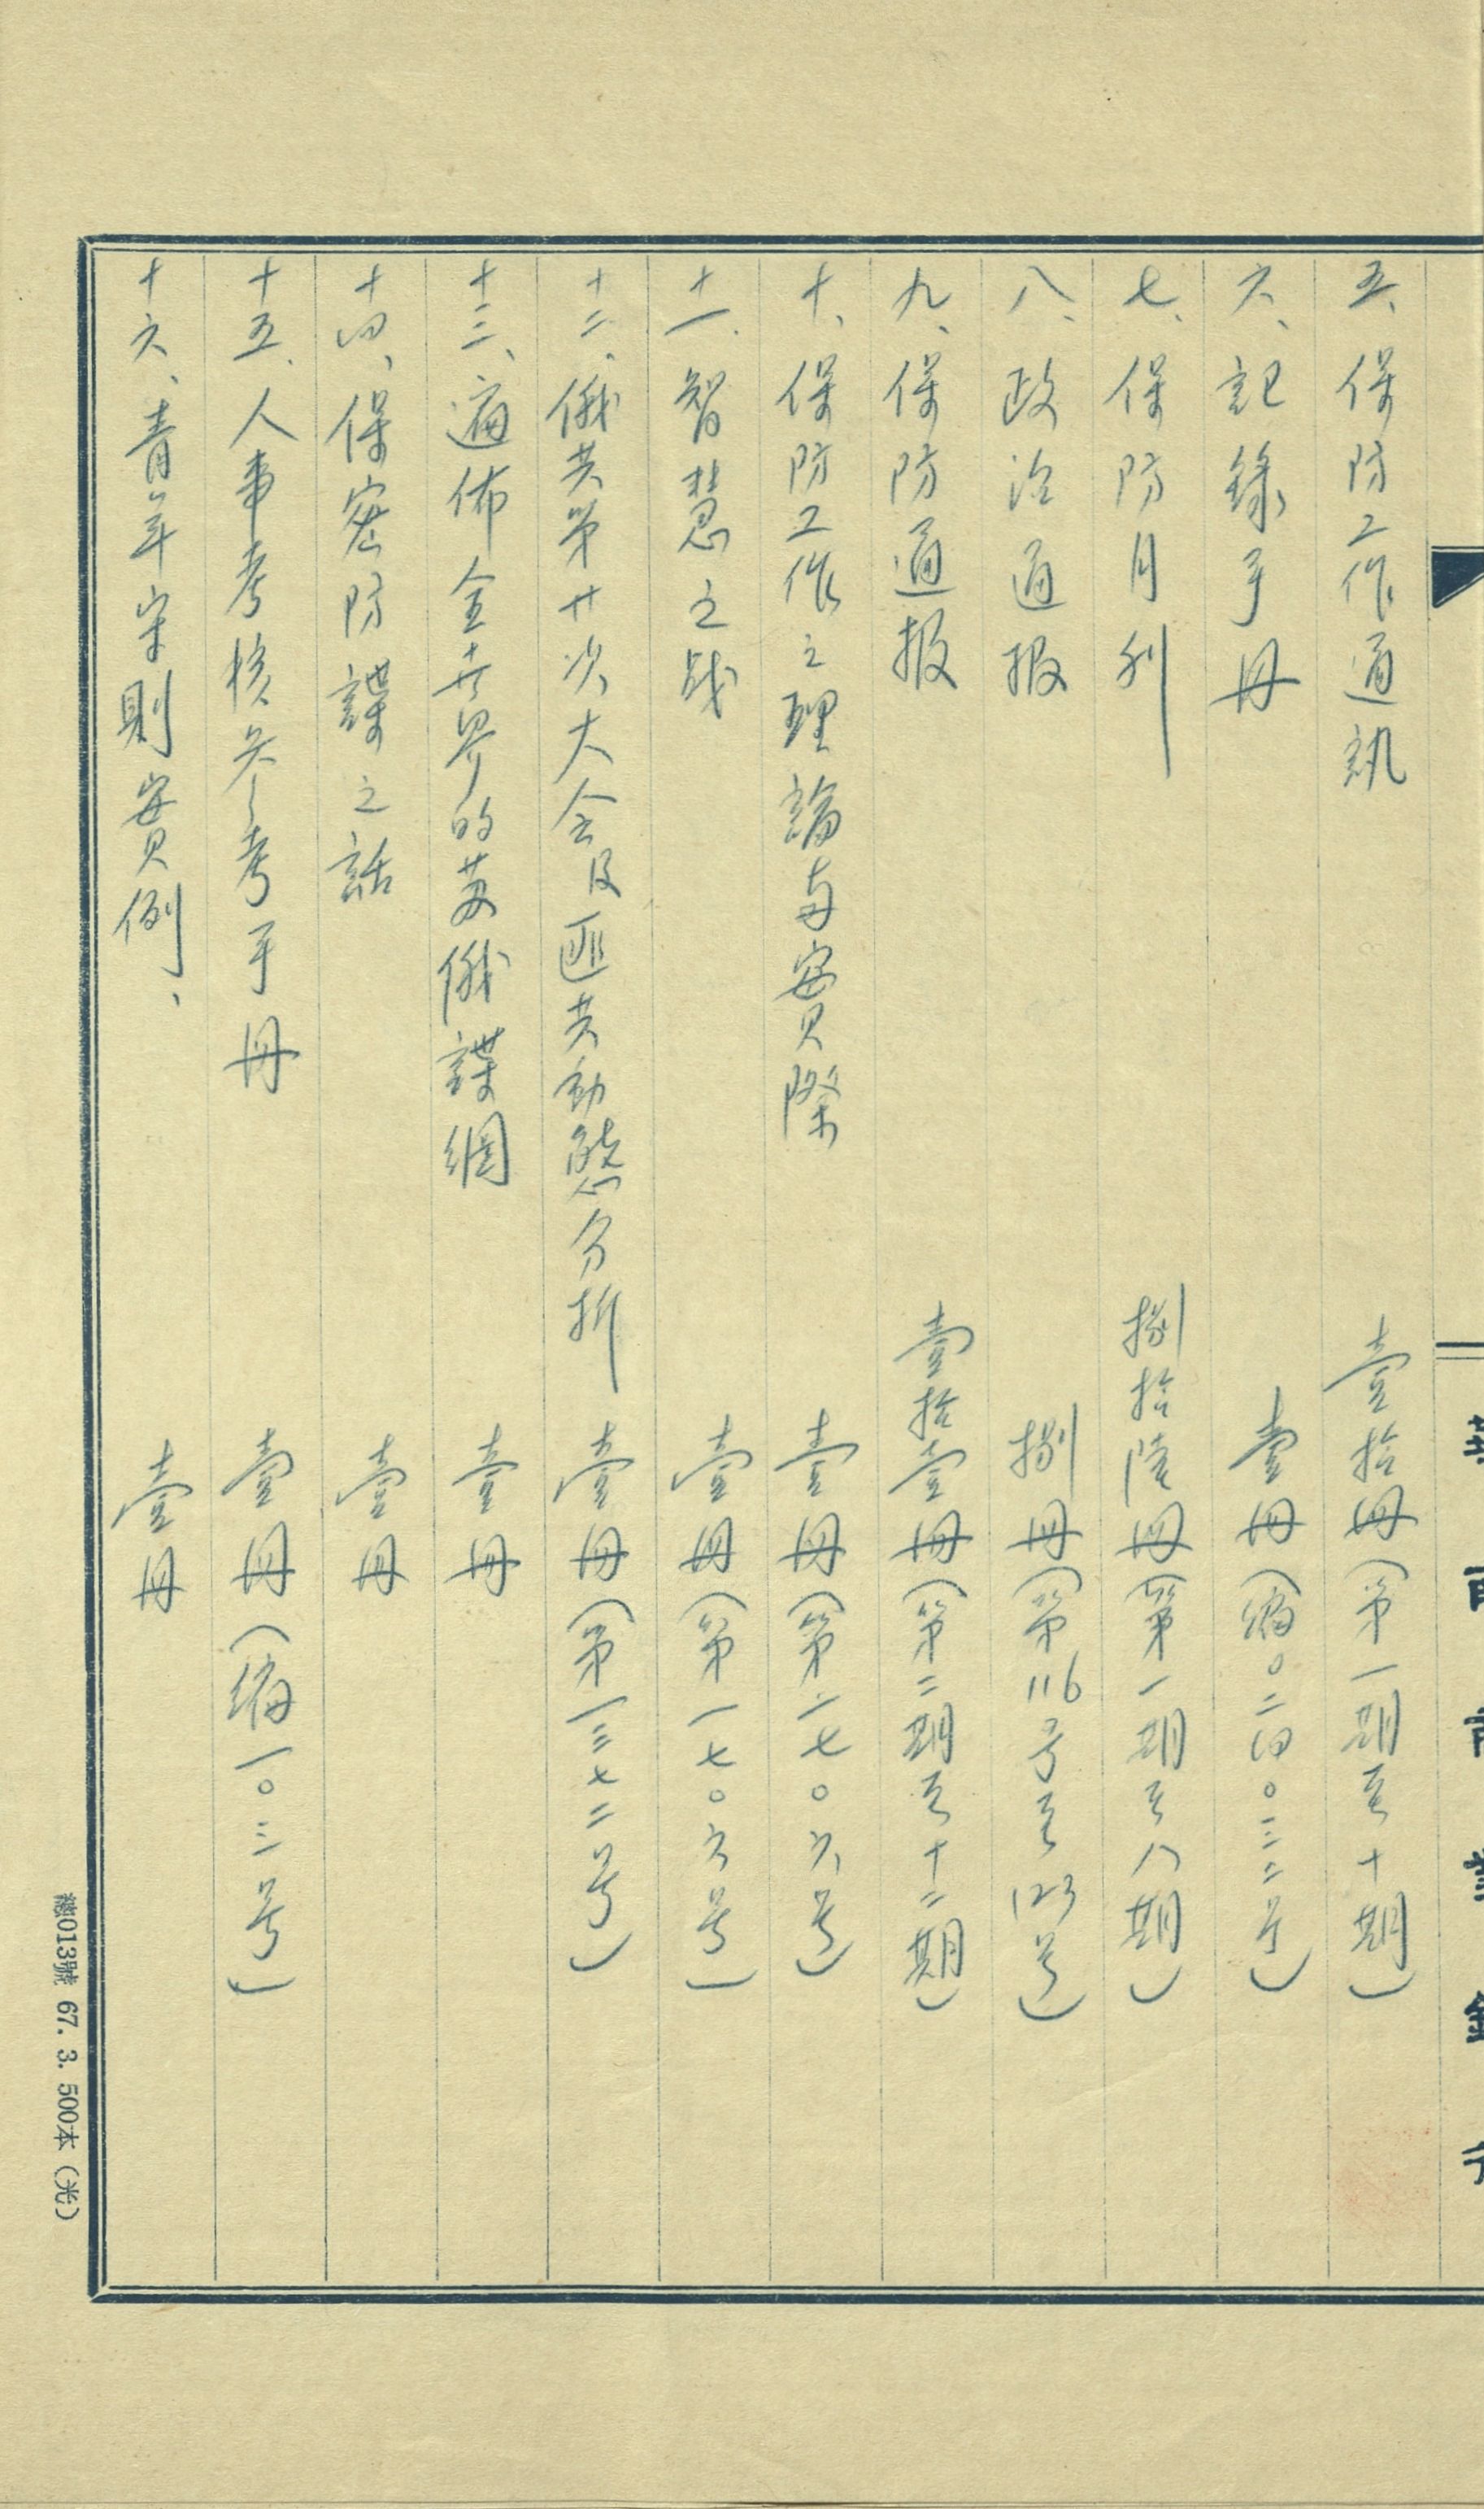 五、保防工作通訊　壹拾冊（第一期至十期）
六、記錄手冊　壹冊（編0二四0三二号）
七、保防月刊　捌拾陸冊（第一期至八期）
八、政治通报　捌冊（第116号至123号）
九、保防通报　壹拾壹冊（第二期至十二期）
十、保防工作之理論与實際　壹冊（第一七0六号）
十一、智慧之战　壹冊（第一七0六号）
十二、俄共第廿次大会及匪共動態分析　壹冊（第一三七二号）
十三、遍佈全世界的苏俄諜網　壹冊
十四、保密防諜之話　壹冊
十五、人事考核参考手冊　壹冊（編一0三号）
十六、青年守則實例、　壹冊
總013號 67. 3. 500本（光）